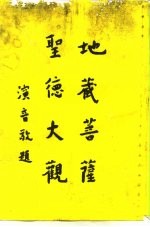 地藏菩薩
聖德大觀
演音敬題